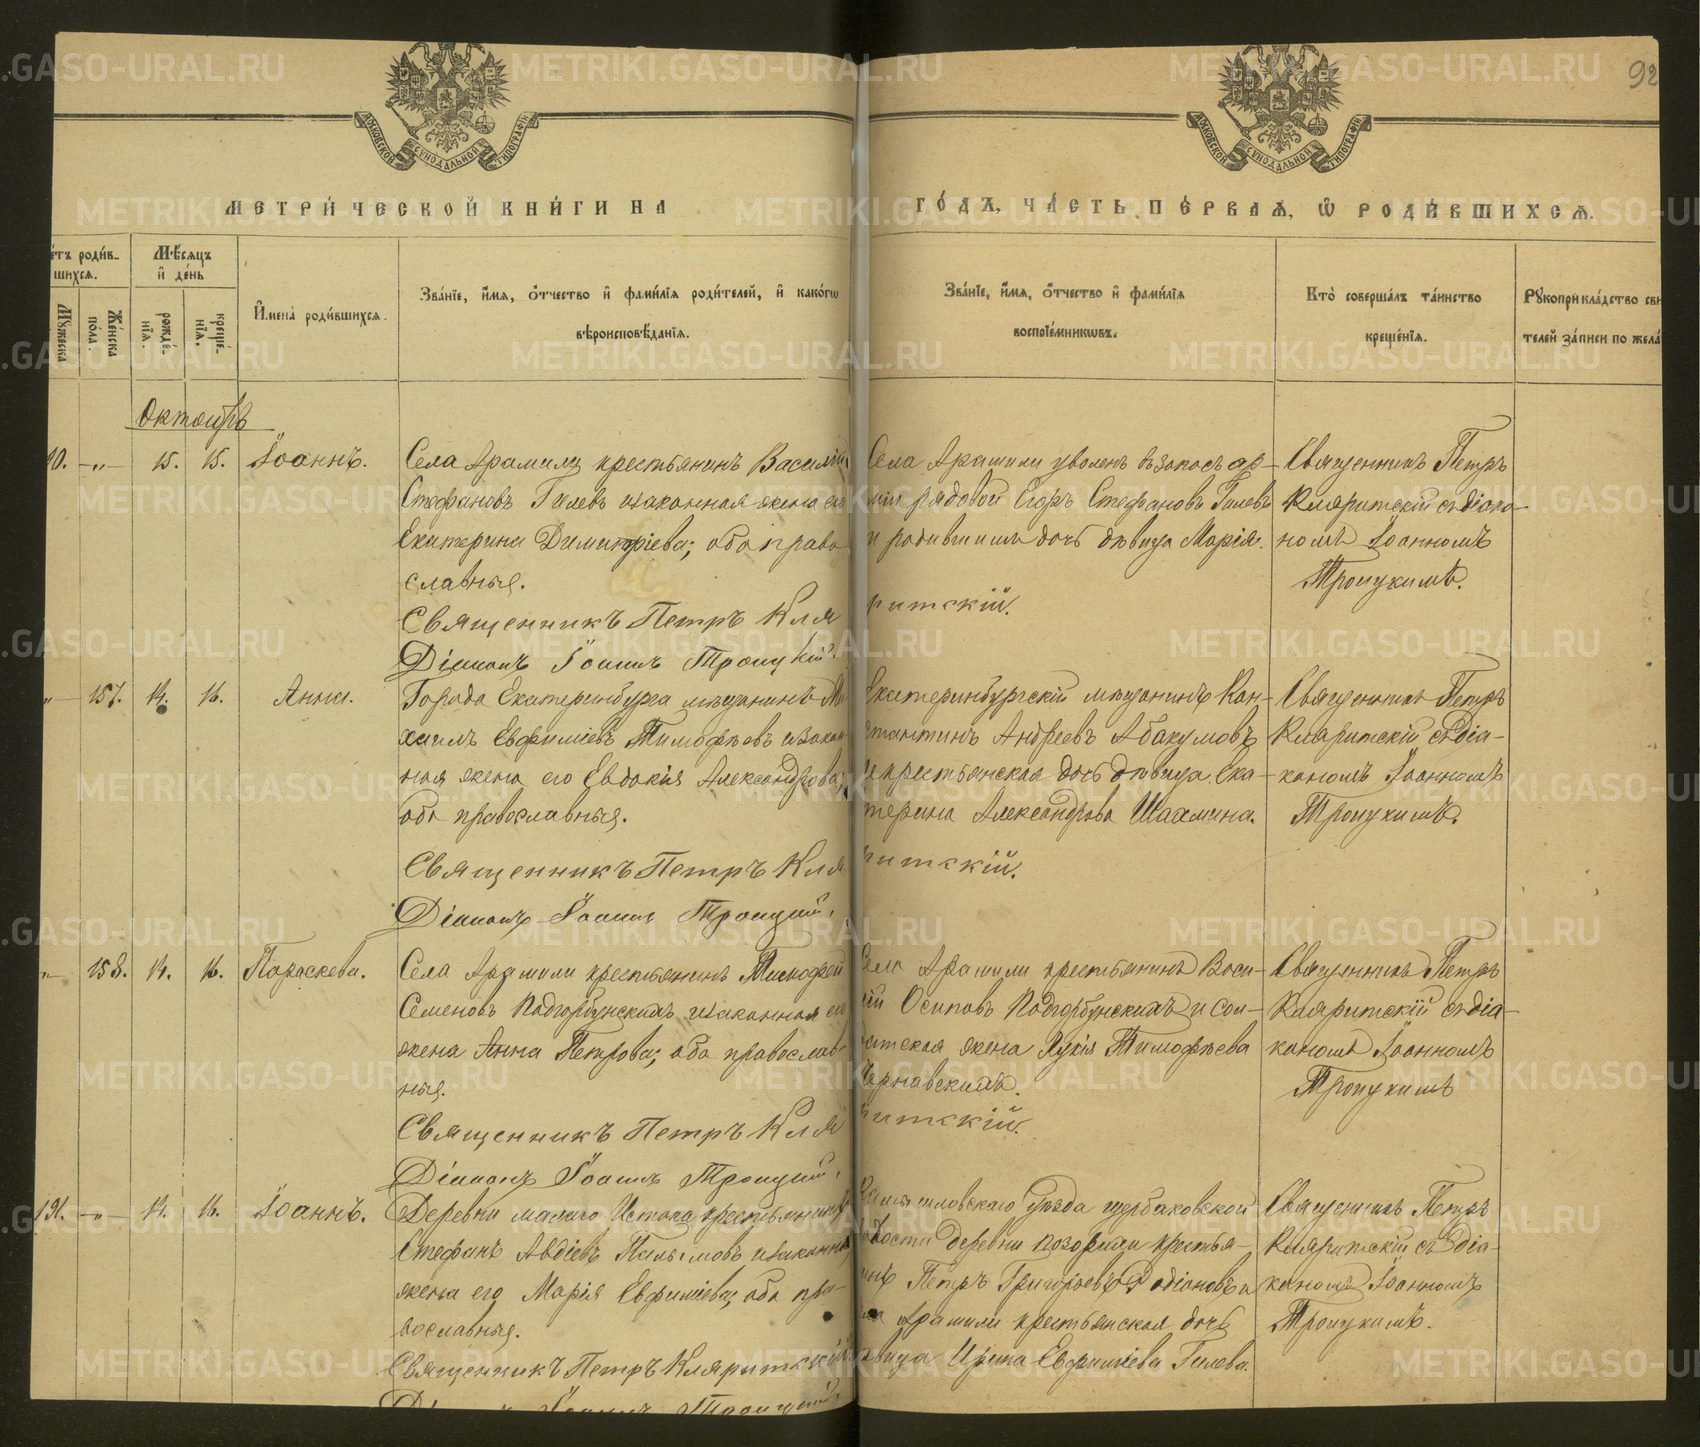 92
МОСКОВСКОЙ СѴНОДАЛЬНОЙ ТИПОГРАФІИ
МОСКОВСКОЙ СѴНОДАЛЬНОЙ ТИПОГРАФІИ
МЕТРИ́ЧЕСКОЙ КНИ́ГИ НА
ГО́ДЪ, ЧА́СТЬ ПЕ́РВАѦ, Ѡ҆ РОДИ́ВШИХСѦ.
е́тъ роди́в-
шихсѧ.
Мѣ́сѧцъ
и҆ де́нь
Мꙋ́жеска
Же́нска
по́ла.
рожде́-
нїѧ.
креще́-
нїѧ.
И҆мена̀ роди́вшихсѧ.
Зва́нїе, и҆́мѧ, ѻ҆́тчество и҆ фами́лїѧ роди́телей, и҆ како́гѡ
вѣроисповѣ́данїѧ.
Зва́нїе, и҆́мѧ, ѻ҆́тчество и҆ фами́лїѧ
воспрїе́мникѡвъ.
Кто̀ соверша́лъ та́инство
креще́нїѧ.
Рꙋкоприкла́дство сви
телей за́писи по жела́
Октябрь
90. -„- 15. 15. Іоаннъ.
Села Арамили крестьянинъ Василій
Стефановъ Гилевъ и законная жена его
Екатерина Димитріева; оба право-
славные.
Священникъ Петръ Кля
Діаконъ Іоаннъ Троицкій.
Села Арамили уволенъ въ запасъ ар-
міи рядовой Егоръ Стефановъ Гилевъ
и родившиля дочь дѣвица Марія.
ритскій.
Священникъ Петръ
Кляритскій съ діако-
номъ Іоанномъ
Троицкимъ.
„ 157. 14. 16. Анна.
Города Екатеринбурга мѣщанинъ Ми
хаилъ Евфиміевъ Тимофѣевъ и закон
ная жена его Евдокія Александрова;
оба православные.
Священникъ Петръ Кля
Діаконъ Іоаннъ Троицкій.
Екатеринбургскій мѣщанинъ Кон-
стантинъ Андреевъ Абакумовъ
и крестьянская дочь дѣвица Ека-
терина Александрова Шахмина.
ритскій.
Священникъ Петръ
Кляритскій съ діа-
кономъ Іоанномъ
Троицкимъ.
„ 158. 14. 16. Параскева.
Села Арамили крестьянинъ Тимофей
Семеновъ Подгорбунскихъ и законная его
жена Анна Петрова; оба православ-
ные.
Священникъ Петръ Кля
Діаконъ Іоаннъ Троицкій.
Села Арамили крестьянинъ Васи-
лій Осиповъ Подгорбунскихъ и сол-
датская жена Лукія Тимофѣева
Чернавскихъ.
ритскій.
Священникъ Петръ
Кляритскій съ діа-
кономъ Іоанномъ
Троицкимъ
191. -„- 14. 16. Іоаннъ.
Деревни малаго Истока крестьянинъ
Стефанъ Авдіевъ и законная
жена его Марія Евфиміева; оба пра-
вославные.
Священникъ Петръ Кляритскій
Діаконъ Іоаннъ Троицкій
Камышловскаго уѣзда щербаковской
волости деревни крестья-
нинъ Петръ Григорьевъ Родіоновъ и
Арамили крестьянская дочь
дѣвица Ирина Евфиміева Гилева.
Священникъ Петръ
Кляритскій съ діа-
кономъ Іоанномъ
Троицкимъ.